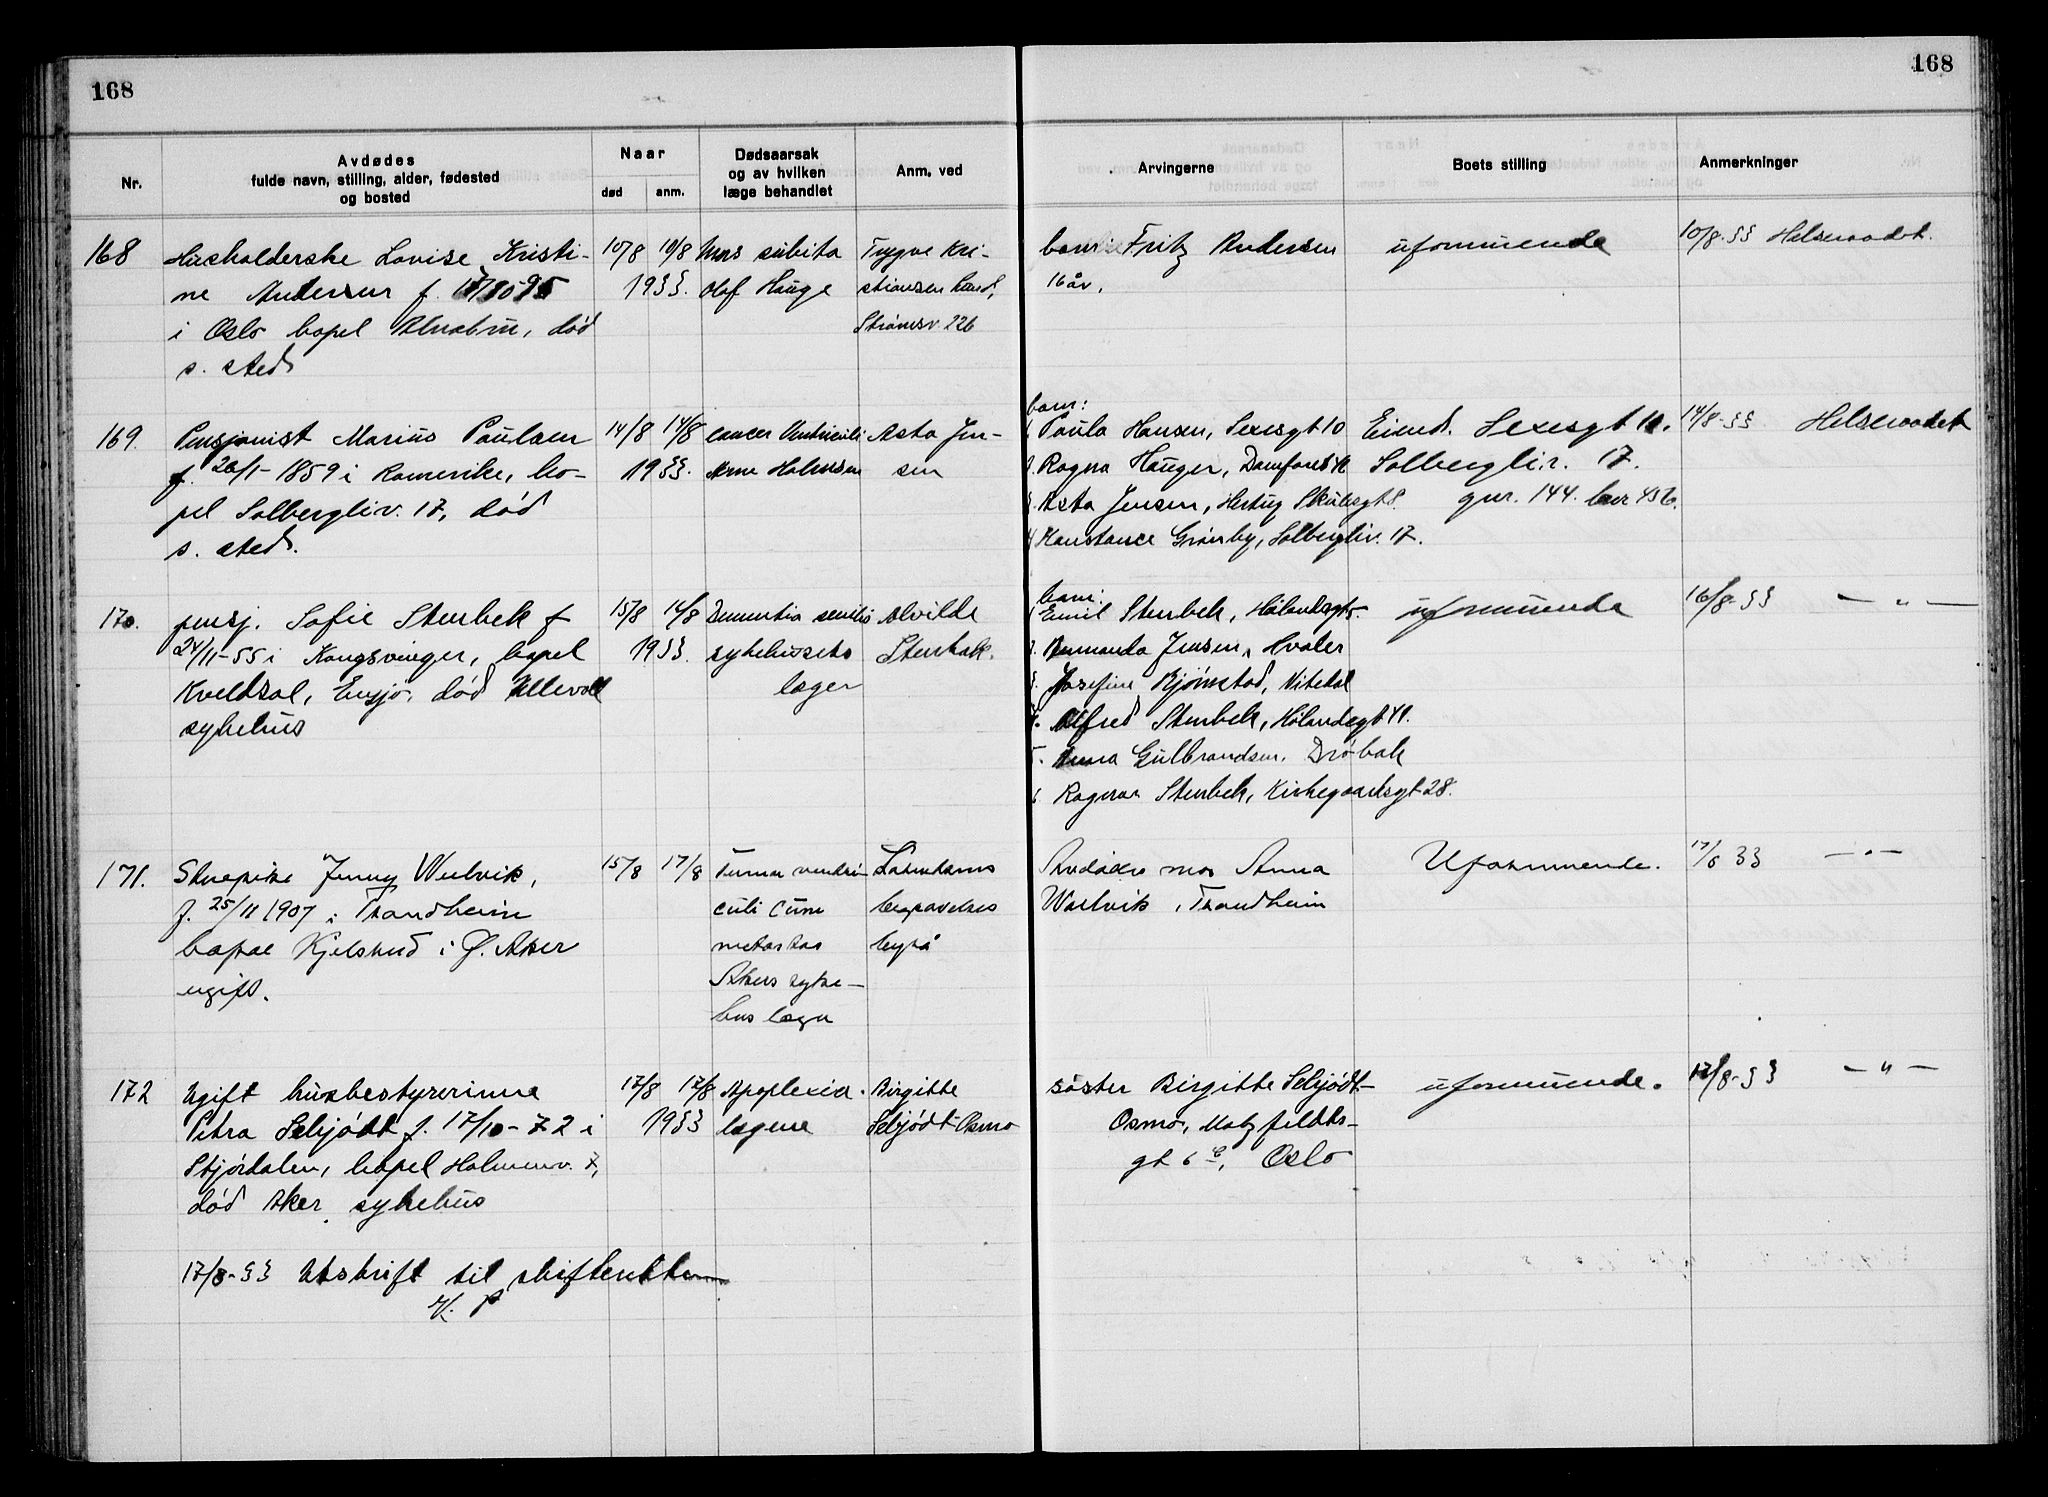 168
168
Nr.
Avdødes
fulde navn, stilling, alder, fødested
og bosted
Naar
død
anm.
Dødsaarsak
og av hvilken
læge behandlet
Anm. ved
Arvingerne
Boets stilling
Anmerkninger
168
Husholderske Lovise Kristi-
ne Andersen f.
i Oslo bopel Alnabru, død
s. sted
10/8 10/8
1933.
Mors subita
Olof Hauge
Trygve Kri-
stiansen
Strømsv. 226
barn Fritz Andersen
16 år.
uformuende
10/8-33 Helseraadet.
169.
Pensjonist Marius Paulsen
f. 26/1-1859 i Romerike, bo-
pel Solbergliv. 17, død
s. sted.
14/8 14/8
1933.
cancer Ventriculi
Arne Halvorsen
Asta Jen-
sen
barn:
1. Paula Hansen, Sexesgt 10
2. Ragna Hauger,
3. Asta Jensen, Hertug Skulesgt 8.
4 Konstance Grønby, Solbergliv. 17.
Eiend. Sexesgt 10.
Solbergli.v. 17.
gnr. 144. bnr 456.
14/8-33 Helseraadet
170.
pensj. Sofie Stenbek f
24/11-55 i Kongsvinger, bopel
Kveldsol, Ensjø, død Ullevål
sykehus
15/8 16/8
1933.
Dementia senilis
sykehusets
læger
Alvilde
Stenbek.
barn:
1 Emil Stenbek, Hølandsgt 5.
2. Amanda Jensen, Hvaler
3. Josefine Bjørnstad, Nitedal
4. Alfred Stenbek, Hølandsgt 41.
5. Anna Gulbrandsen. Drøbak
6 Ragnar Stenbek, Kirkegaardsgt 28.
uformuende
16/8-33 — " —
171.
Skuepike Jenny Wulvik,
f. 25/11 1907 i Trondheim
bopæl Kjelsrud i Ø. Aker
ugift.
15/8 17/8
Tumor ventri-
culi cum
metastas
Akers syke-
hus læger
Københavns
begravelses
byrå
Avdødes mor Anna
Wulvik, Trondheim
Uformuende.
17/8 33 — " —
172
Ugift husbestyrerinne
Petra Schjödt f. 17/10-72 i
Stjørdalen, bopel Holmenv. 7,
død Aker sykehus
17/8 17/8
1933
Apoplexia.
lægene
Birgitte
Schjödt-Osmo
søster Birgitte Schjödt-
Osmo, Motzfeldts-
gt 6 c, Oslo
uformuende.
17/8-33 — " —
17/8-33 Utskrift til skifteretten